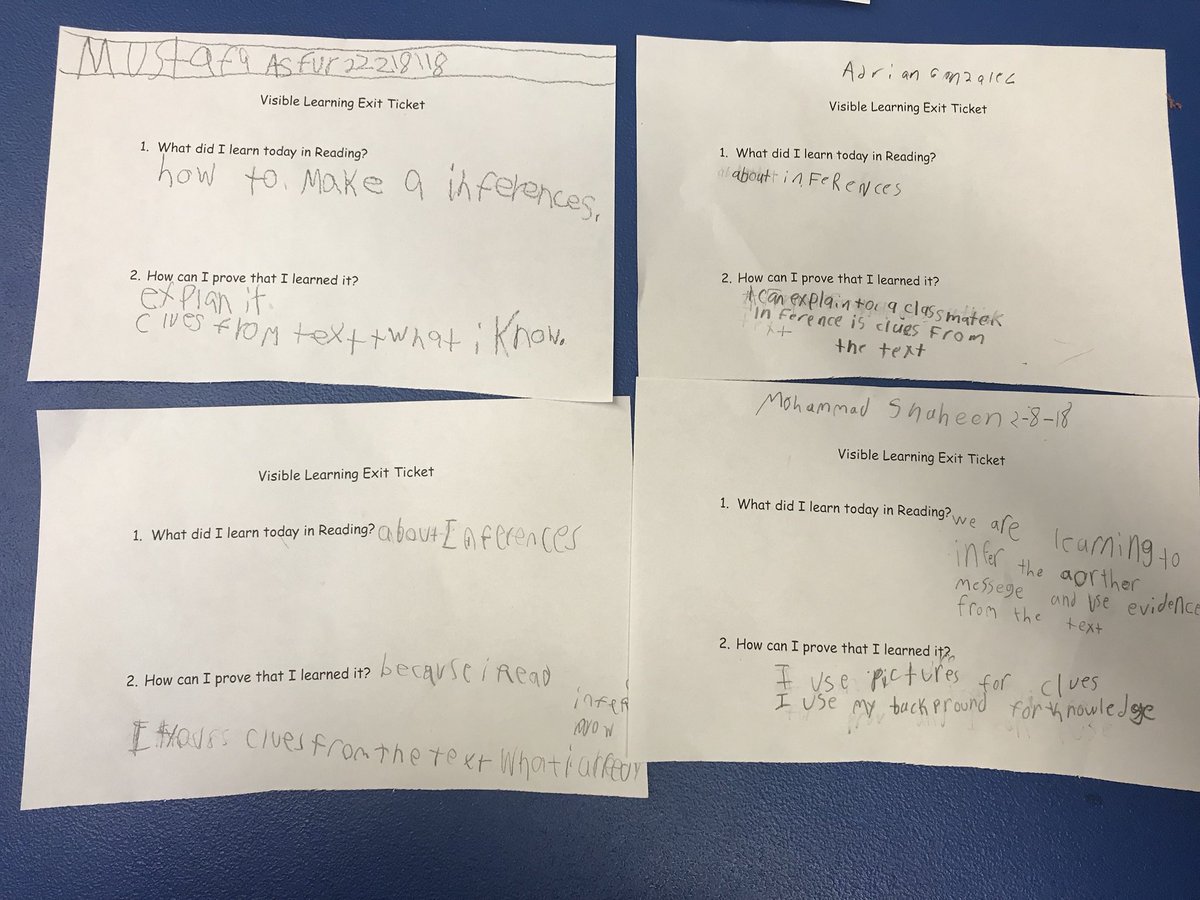 Mustafa Asfur 22218\18
Visible Learning Exit Ticket
1. What did I learn today in Reading?
how to. Make a inferences.
2. How can I prove that I learned it?
explan it.
clues from text + what i Know.
Adrian Gonzalez
Visible Learning Exit Ticket
1. What did I learn today in Reading?
about inFeRences
2. How can I prove that I learned it?
I can explain to a classmate
InFerence is clues From
the text
Visible Learning Exit Ticket
1. What did I learn today in Reading? about Inferences
2. How can I prove that I learned it? because i Read
infer
clues from the text What i
Mohammad Shaheen 2-8-18
Visible Learning Exit Ticket
1. What did I learn today in Reading? we are learning to
infer the aorther
messege and use evidence
from the text
2. How can I prove that I learned it?
I use pictures for clues
I use my background for knowledge